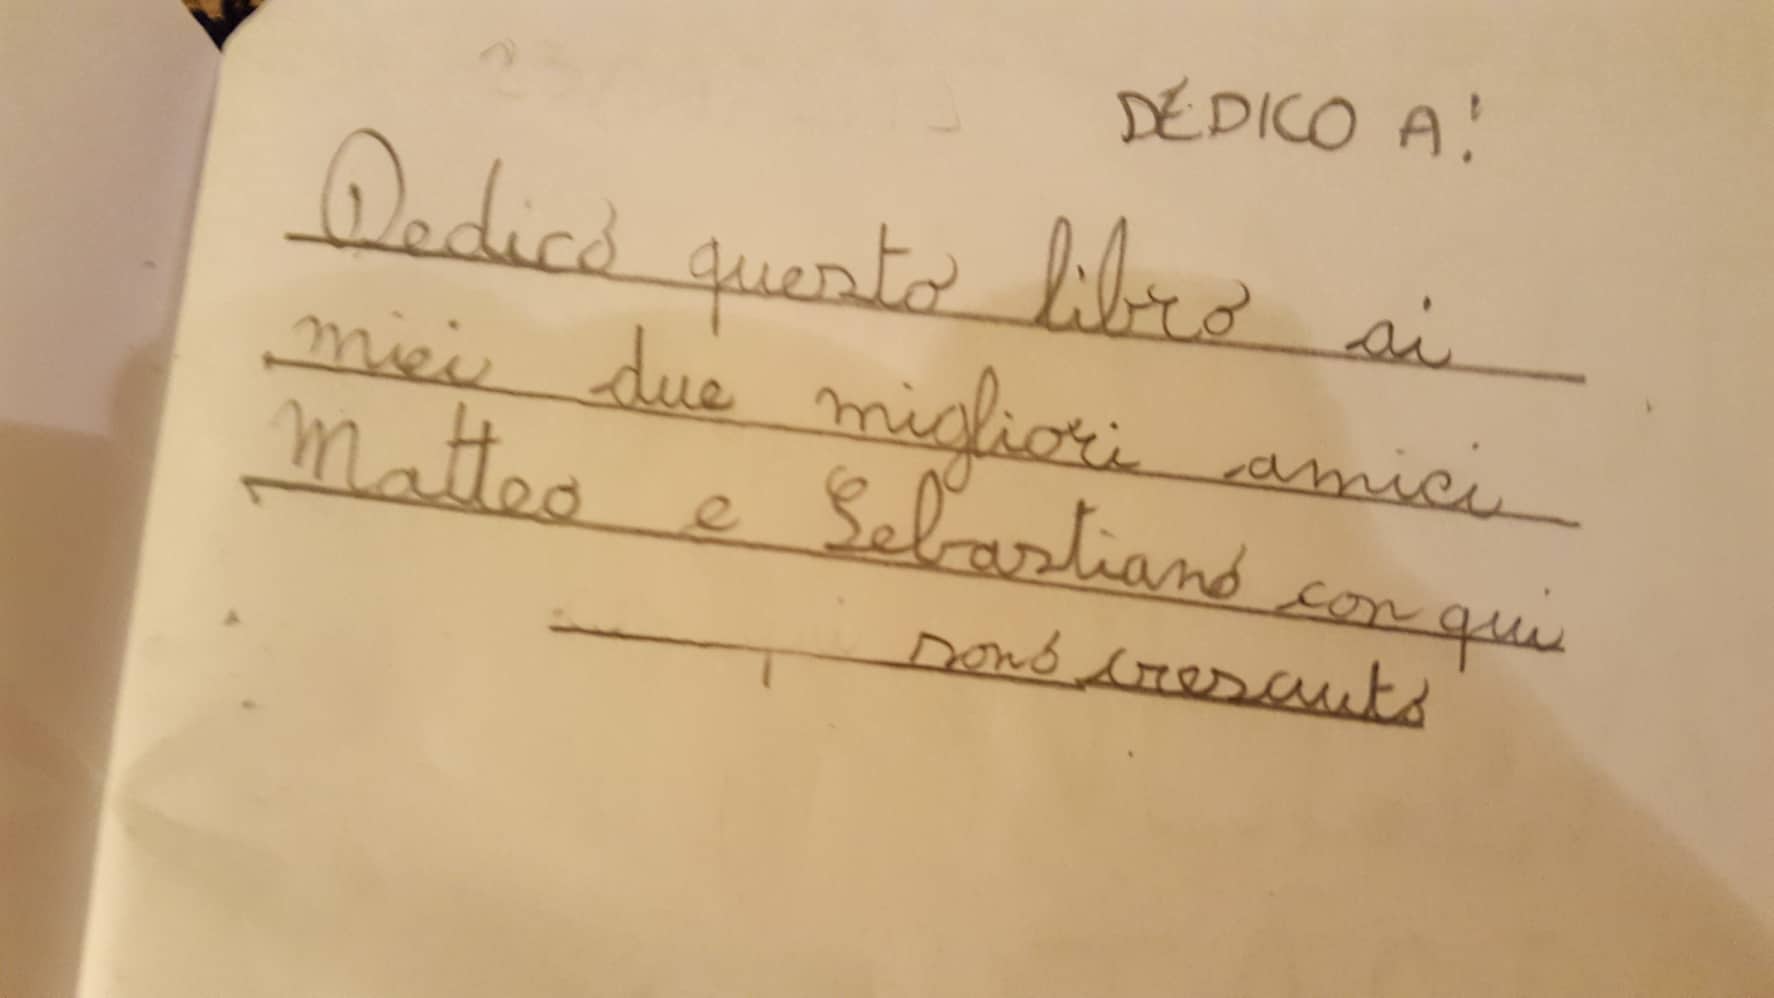 DEDICO A:
Dedico questo libro ai
miei due migliori amici
Matteo e Sebastiano con qui
sono cresciuto